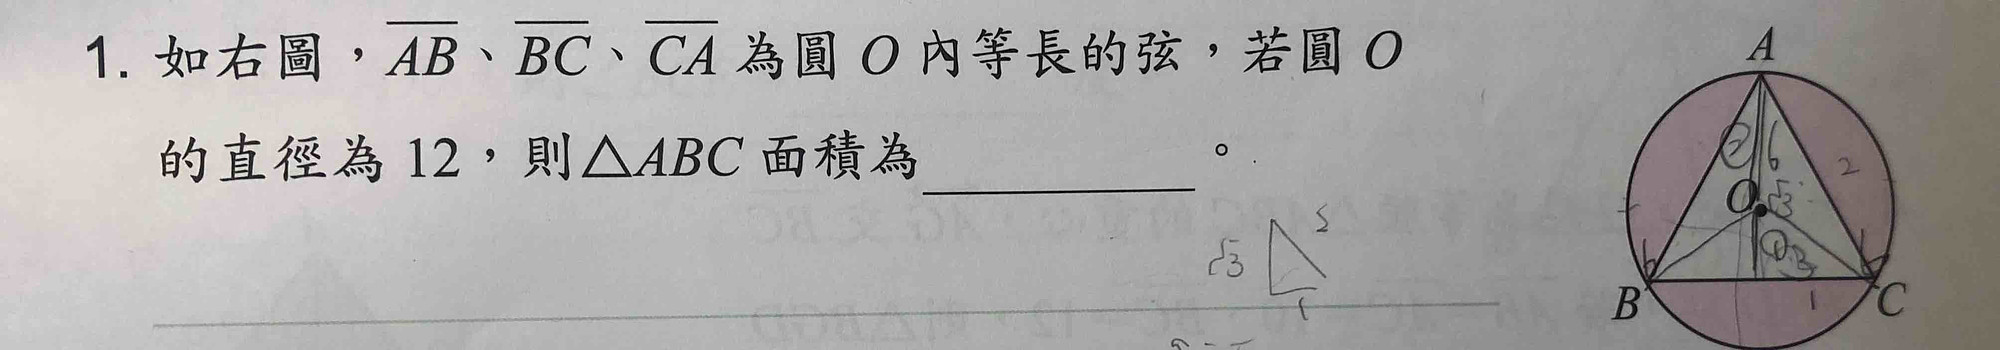 1. 如右圖，AB、BC、CA 為圓 O 內等長的弦，若圓 O
的直徑為 12，則△ABC 面積為＿＿＿＿。
A
2
6
2
O
√3
1
3
6
6
B
1
C
√3
2
1